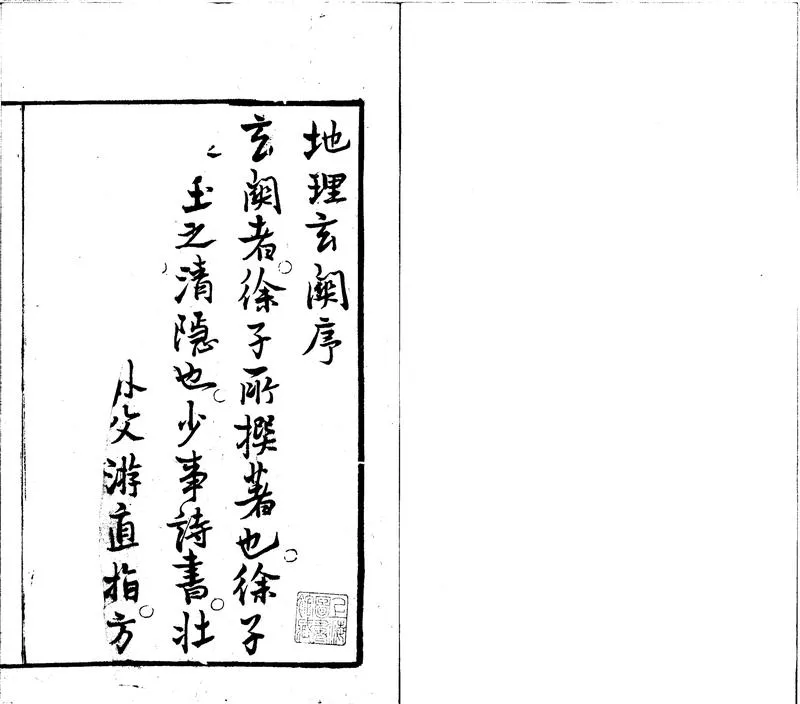 地理玄關序
玄關者徐子所撰著也徐子
玉之清隱也少事詩書壯
父游直指方